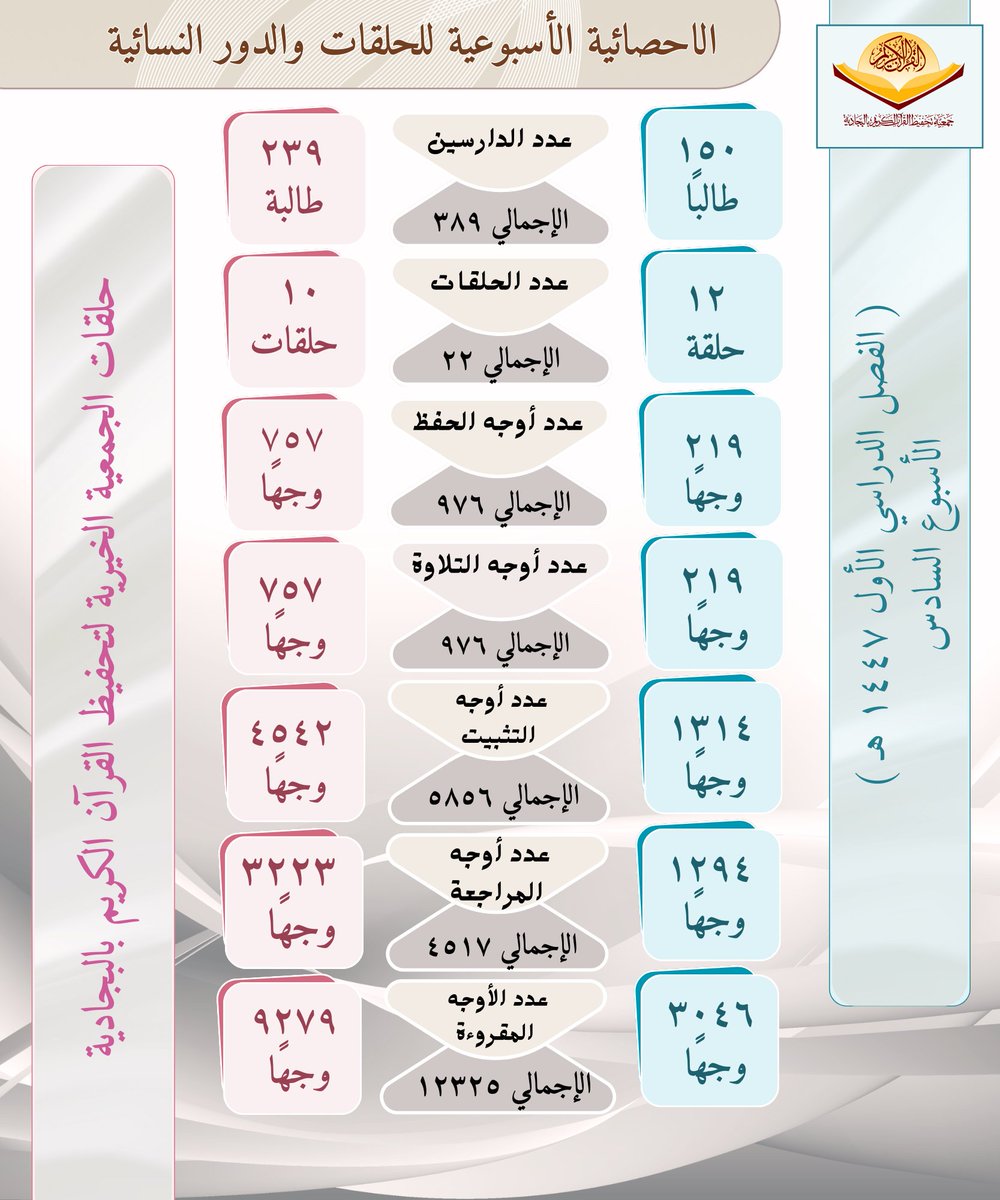 الاحصائية الأسبوعية للحلقات والدور النسائية
القرآن الكريم
جمعية تحفيظ القرآن الكريم بالبجادية
( الفصل الدراسي الأول ١٤٤٧ هـ )
الأسبوع السادس
عدد الدارسين
١٥٠
طالبًا
٢٣٩
طالبة
الإجمالي ٣٨٩
عدد الحلقات
١٢
حلقة
١٠
حلقات
الإجمالي ٢٢
عدد أوجه الحفظ
٢١٩
وجهًا
٧٥٧
وجهًا
الإجمالي ٩٧٦
عدد أوجه التلاوة
٢١٩
وجهًا
٧٥٧
وجهًا
الإجمالي ٩٧٦
عدد أوجه
التثبيت
١٣١٤
وجهًا
٤٥٤٢
وجهًا
الإجمالي ٥٨٥٦
عدد أوجه
المراجعة
١٢٩٤
وجهًا
٣٢٢٣
وجهًا
الإجمالي ٤٥١٧
عدد الأوجه
المقروءة
٣٠٤٦
وجهًا
٩٢٧٩
وجهًا
الإجمالي ١٢٣٢٥
حلقات الجمعية الخيرية لتحفيظ القرآن الكريم بالبجادية